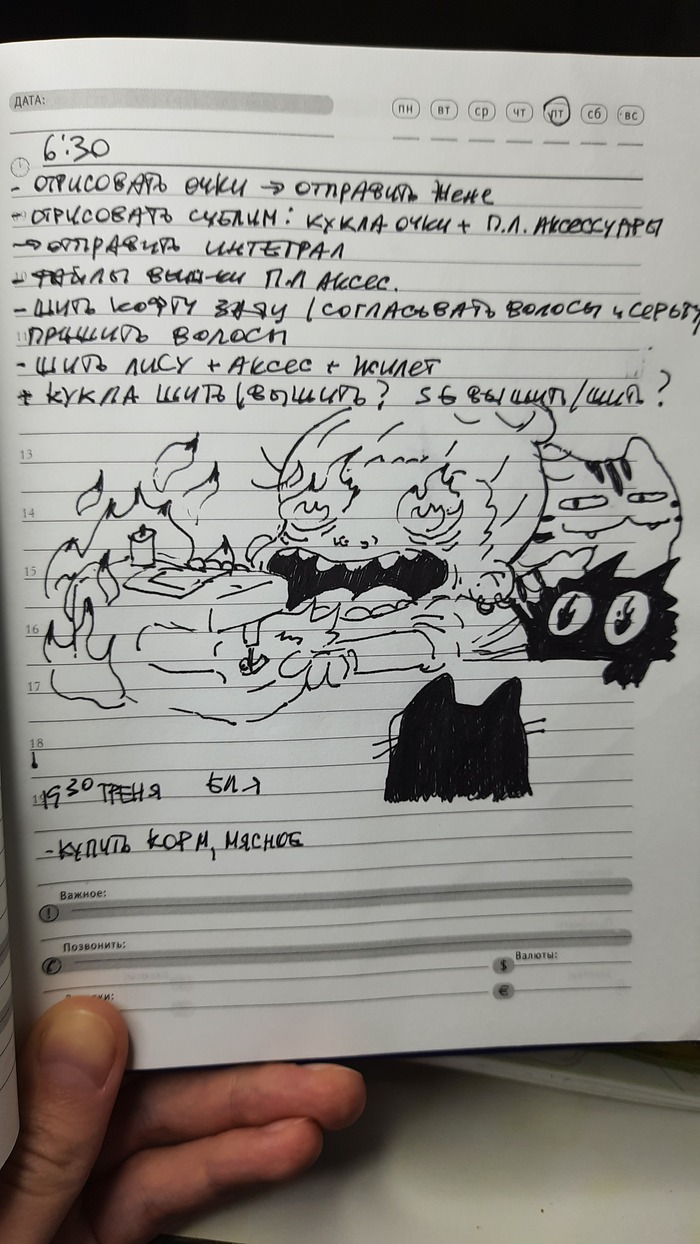 ДАТА:
пн вт ср чт пт сб вс
6:30
- ОТРИСОВАТЬ ОЧКИ → ОТПРАВИТЬ ЖЕНЕ
- ОТРИСОВАТЬ СУБЛИМ: КУКЛА ОЧКИ + П.Л. АКСЕССУАРЫ
→ ОТПРАВИТЬ ИНТЕГРАЛ
- ФАЙЛЫ ВЫШ-КИ П.Л АКСЕС.
- ШИТЬ КОФТУ (СОГЛАСЫВАТЬ ВОЛОСЫ И СЕРЬГУ
ПРИШИТЬ ВОЛОСЫ
- ШИТЬ ЛИСУ + АКСЕС + ЖИЛЕТ
+ КУКЛА ШИТЬ (ВЫШИТЬ? ВЫШИТЬ/ШИТЬ?
13
14
15
16
17
18
19 30 ТРЕНЯ БЛЯ
- КУПИТЬ КОРМ, МЯСНОЕ
Важное:
Позвонить:
Валюты:
$
€